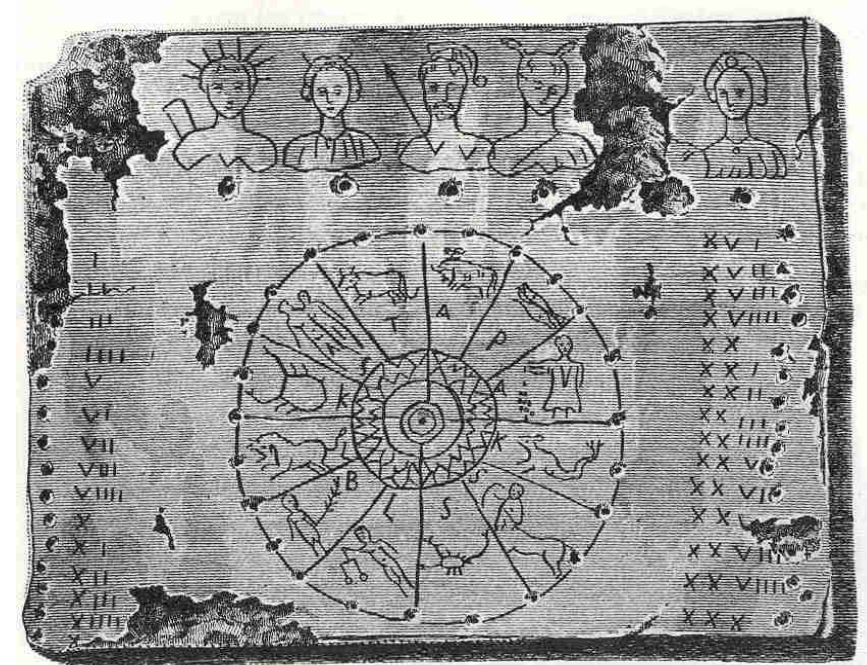 I
III
IIII
V
VI
VII
VIII
VIIII
X
XI
XII
XIII
XIIII
X
T A
P
A
K
K
S
B
L
S
XVI
XVII
XVIII
XVIIII
XX
XXI
XXII
XXIII
XXIIII
XXV
XXVI
XX
XXVIII
XXVIIII
XXX